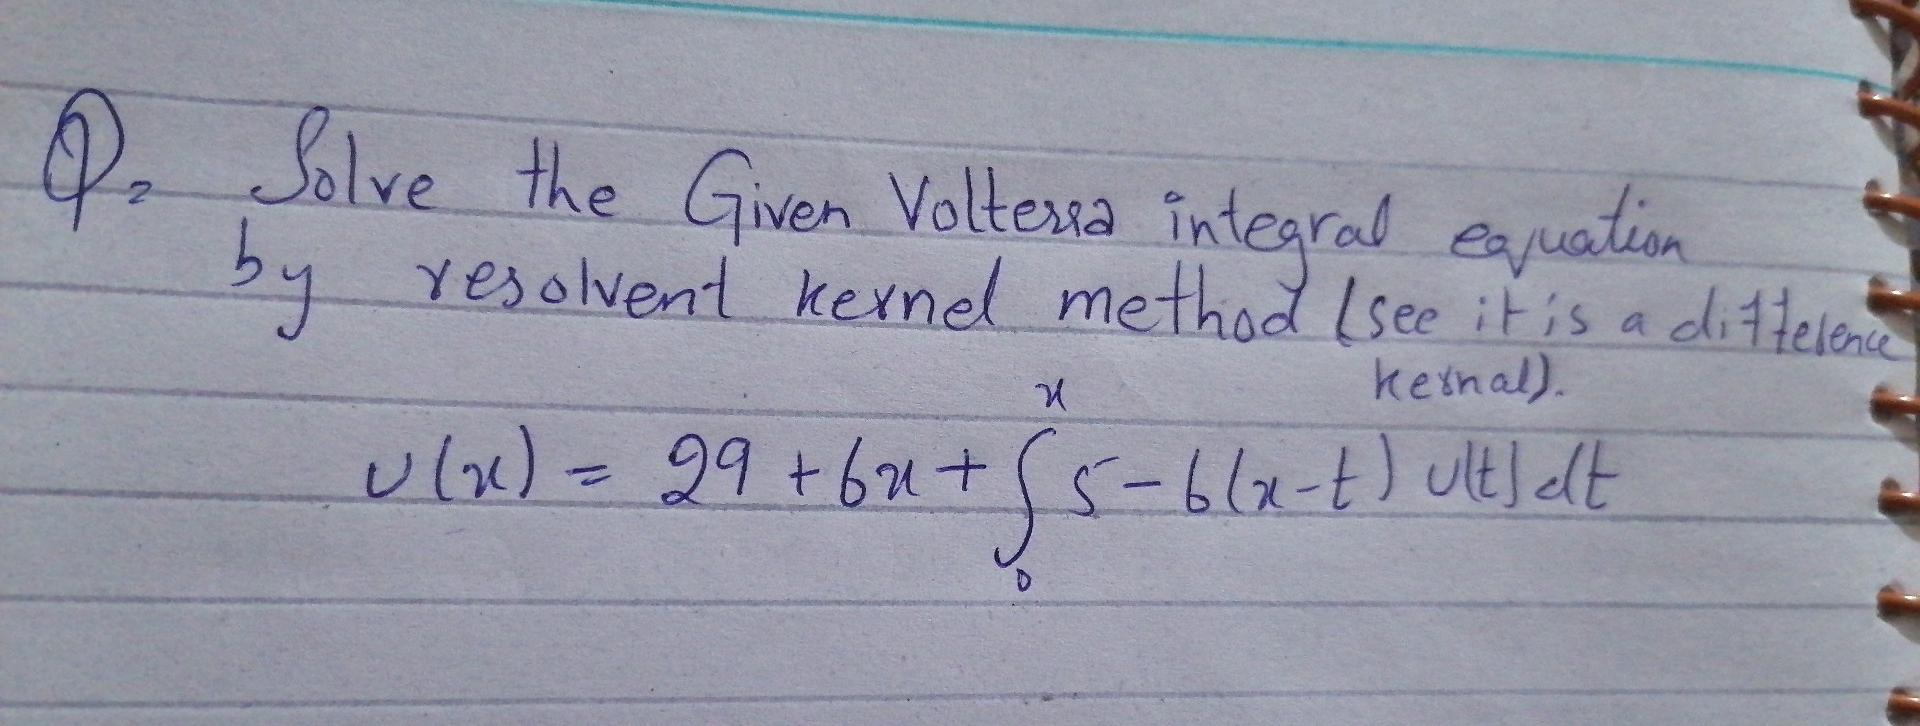 Q. Solve the Given Volterra integral equation
by resolvent kernel method (see it is a difference
kernal).
u(x) = 29 + 6x + ∫₀ˣ 5 - 6(x-t) u(t) dt